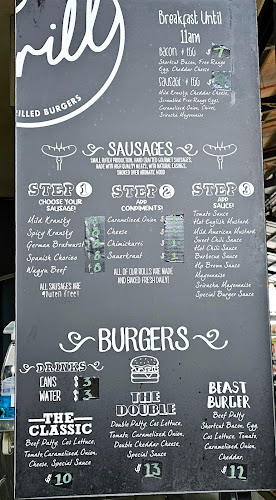 Grill
GRILLED BURGERS
Breakfast Until
11am
BACON + EGG $
Shortcut Bacon, Free Range
Egg, Cheddar Cheese
SAUSAGE + EGG $
Mild Kransky, Cheddar Cheese,
Scrambled Free Range Eggs,
Caramelized Onion, Chives,
Sriracha Mayonnaise
SAUSAGES
SMALL BATCH PRODUCTION, HAND CRAFTED GOURMET SAUSAGES,
MADE WITH HIGH QUALITY MEATS, WITH NATURAL CASINGS,
SMOKED OVER AROMATIC WOOD
STEP 1
CHOOSE YOUR
SAUSAGE!
Mild Kransky
Spicy Kransky
German Bratwurst
Spanish Chorizo
Wagyu Beef
ALL SAUSAGES ARE
gluten free!
STEP 2
ADD
CONDIMENTS!
Caramelized Onion
Cheese
Chimichurri
Sauerkraut
ALL OF OUR ROLLS ARE MADE
AND BAKED FRESH DAILY!
STEP 3
ADD
SAUCE!
Tomato Sauce
Hot English Mustard
Mild American Mustard
Sweet Chili Sauce
Hot Chili Sauce
Barbecue Sauce
Hp Brown Sauce
Mayonnaise
Sriracha Mayonnaise
Special Burger Sauce
BURGERS
DRINKS
CANS $ 3
WATER $ 3
THE
CLASSIC
Beef Patty, Cos Lettuce,
Tomato, Caramelized Onion,
Cheese, Special Sauce
$ 10
THE
DOUBLE
Double Beef Patty, Cos Lettuce,
Tomato, Caramelized Onion,
Double Cheddar Cheese,
Special Sauce
$ 13
BEAST
BURGER
Beef Patty
Shortcut Bacon, Egg,
Cos Lettuce, Tomato,
Caramelized Onion,
Cheddar,
$ 12